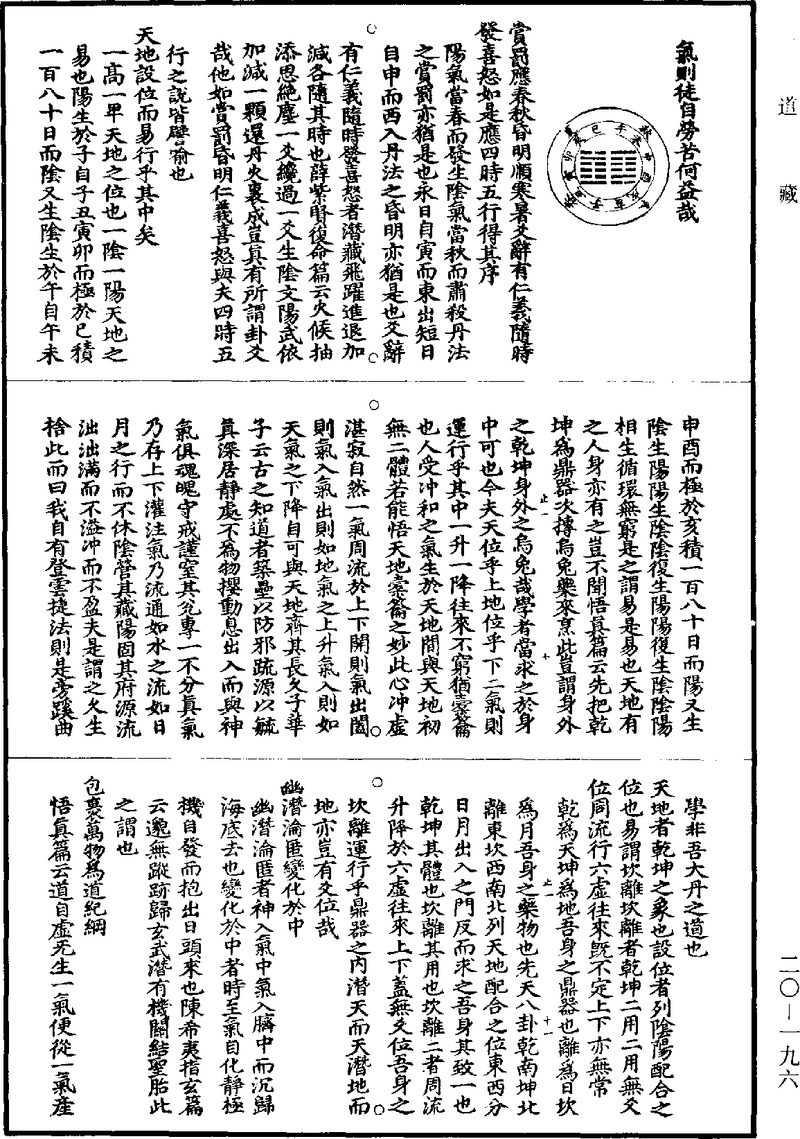 道藏
氣則徒自勞苦何益哉
賞罰應春秋昏明順寒暑爻辭有仁義隨時
發喜怒如是應四時五行得其序
陽氣當春而發生陰氣當秋而肅殺丹法
之賞罰亦猶是也永日自寅而東出短日
自申而西入丹法之昏明亦猶是也爻辭
有仁義隨時發喜怒者潛藏飛躍進退加
減各隨其時也薛紫賢復命篇云火候抽
添思絶塵一爻纔過一爻生陰文陽武依
加減一顆還丹火裏成豈真有所謂卦爻
哉他如賞罰昏明仁義喜怒與夫四時五
行之說皆譬喻也
天地設位而易行乎其中矣
一高一卑天地之位也一陰一陽天地之
易也陽生於子自子丑寅卯而極於巳積
一百八十日而陰又生陰生於午自午未
申酉而極於亥積一百八十日而陽又生
陰生陽陽生陰陰復生陽陽復生陰陰陽
相生循環無窮是之謂易是易也天地有
之人身亦有之豈不聞悟真篇云先把乾
坤爲鼎器次摶烏兔藥來烹此豈謂身外
之乾坤身外之烏兔哉學者當求之於身
中可也今夫天位乎上地位乎下二氣則
運行乎其中一升一降往來不窮猶橐籥
也人受冲和之氣生於天地間與天地初
無二體若能悟天地橐籥之妙此心冲虛
湛寂自然一氣周流於上下開則氣出闔
則氣入氣出則如地氣之上升氣入則如
天氣之下降自可與天地齊其長久子華
子云古之知道者築壘以防邪疏源以毓
真深居靜處不爲物攖動息出入而與神
氣俱魂魄守戒謹窒其兌專一不分真氣
乃存上下灌注氣乃流通如水之流如日
月之行而不休陰營其藏陽固其府源流
泏泏滿而不溢冲而不盈夫是謂之久生
捨此而曰我自有登雲捷法則是旁蹊曲
學非吾大丹之道也
天地者乾坤之象也設位者列陰陽配合之
位也易謂坎離坎離者乾坤二用二用無爻
位周流行六虛往來旣不定上下亦無常
乾爲天坤爲地吾身之鼎器也離爲日坎
爲月吾身之藥物也先天八卦乾南坤北
離東坎西南北列天地配合之位東西分
日月出入之門反而求之吾身其致一也
乾坤其體也坎離其用也坎離二者周流
升降於六虛往來上下蓋無爻位吾身之
坎離運行乎鼎器之内潛天而天潛地而
地亦豈有爻位哉
幽潛淪匿變化於中
幽潛淪匿者神入氣中氣入臍中而沉歸
海底去也變化於中者時至氣自化靜極
機自發而抱出日頭來也陳希夷指玄篇
云邈無蹤跡歸玄武潛有機關結聖胎此
之謂也
包裹萬物爲道紀綱
悟真篇云道自虛无生一氣便從一氣產
二〇—一九六